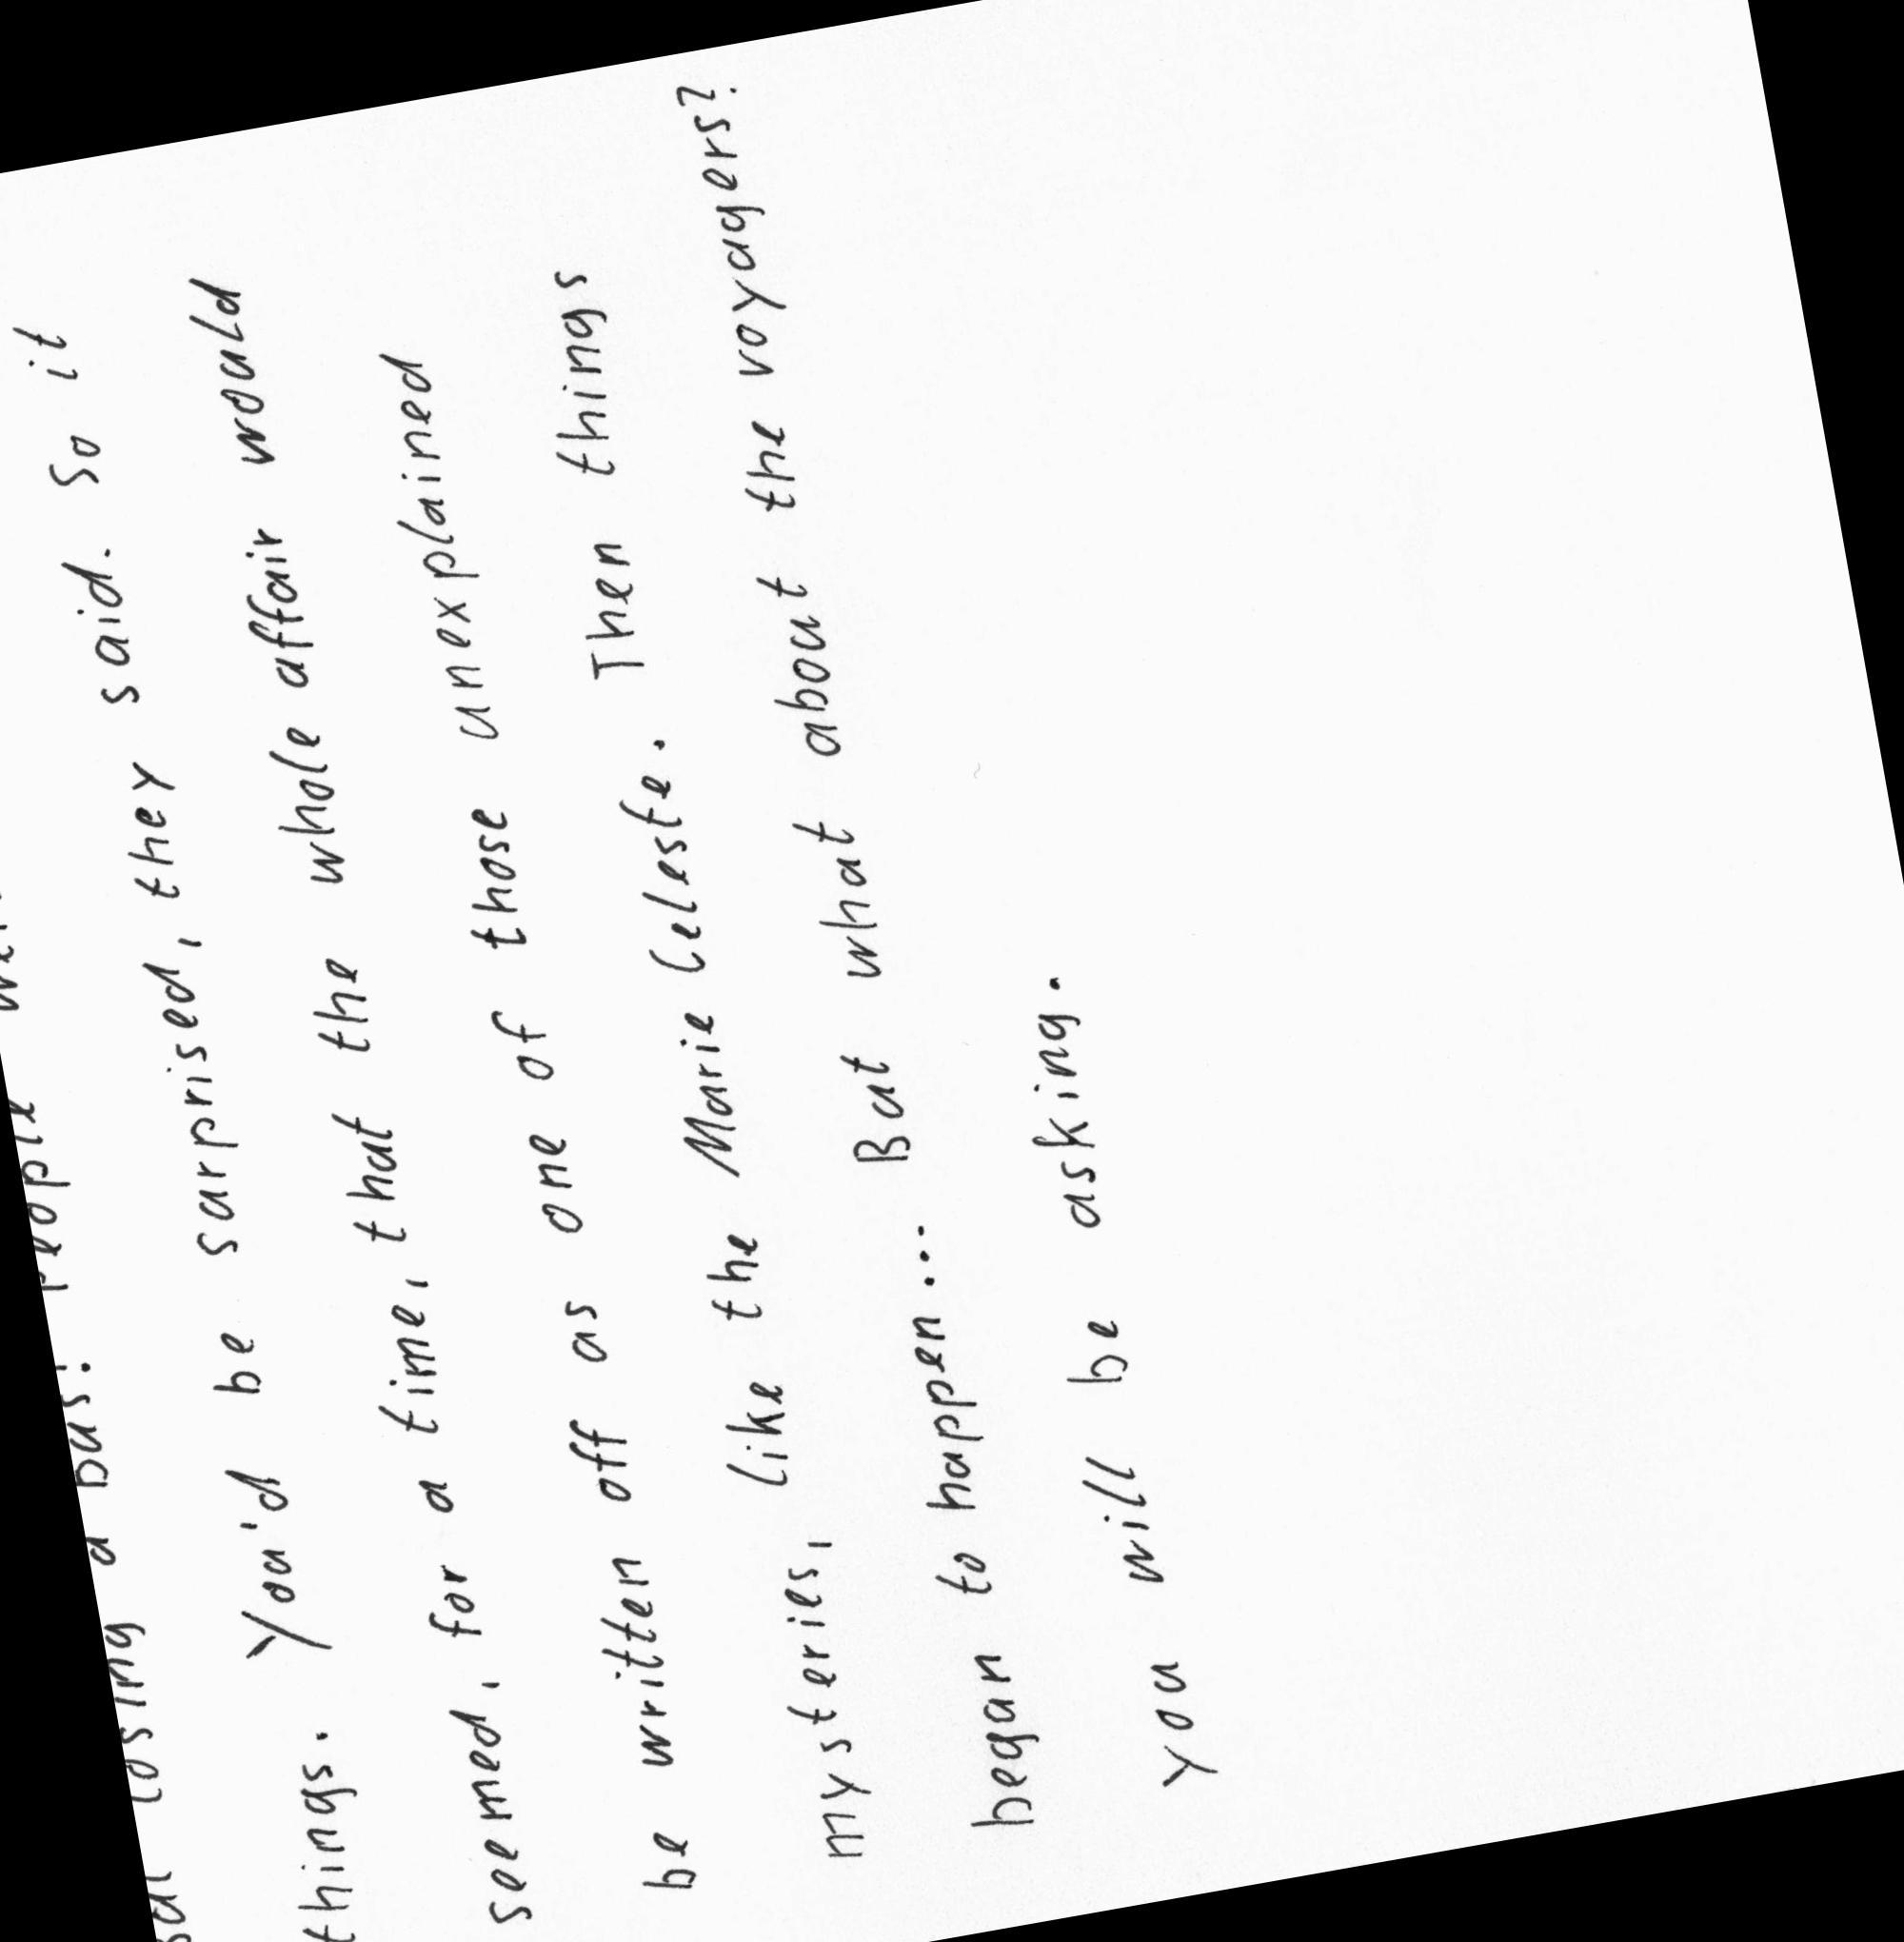 losing a bus!
things. You'd be surprised, they said. So it
seemed, for a time, that the whole affair would
be written off as one of those unexplained
mysteries, like the Marie Celeste. Then things
began to happen... But what about the voyagers?
you will be asking.